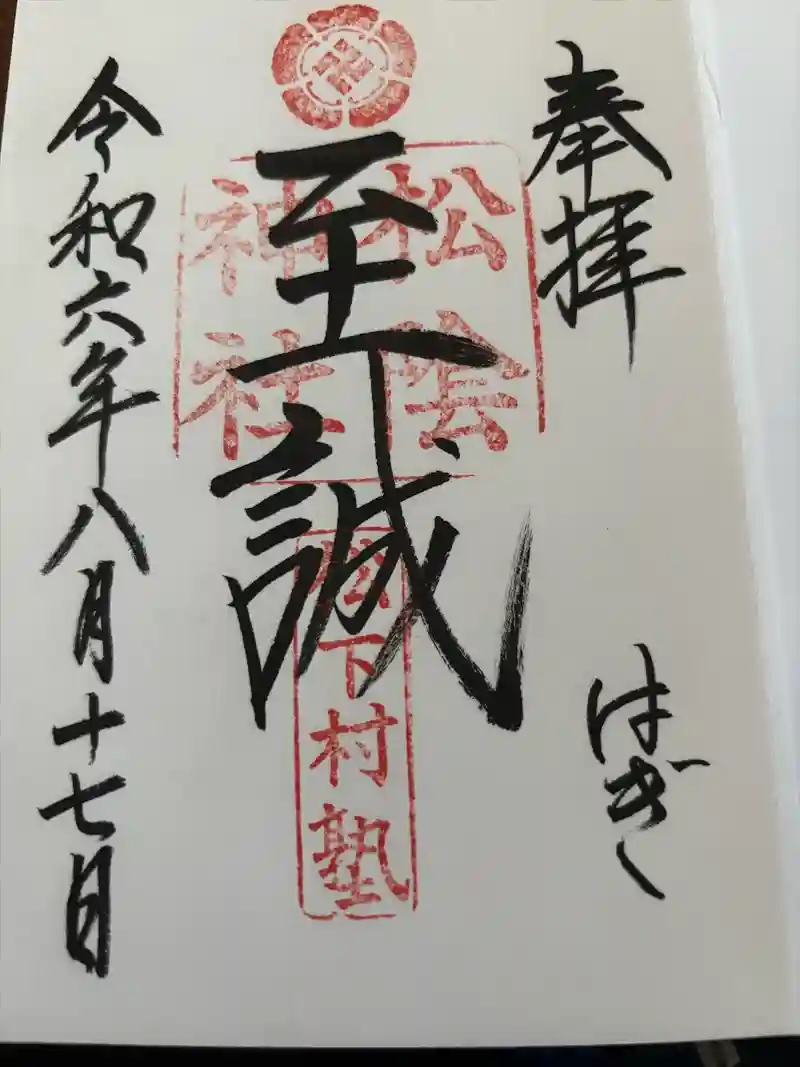 奉拝
はぎ
松陰
神社
至誠
松下村塾
令和六年八月十七日